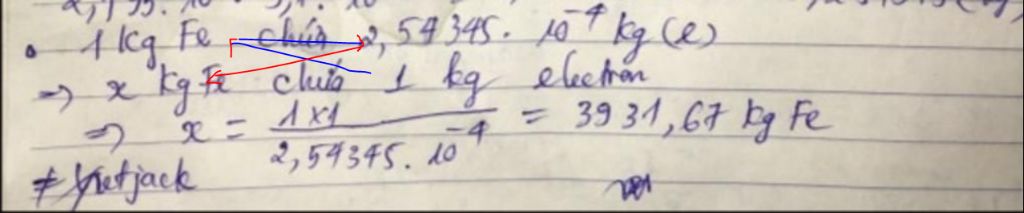 • 1 kg Fe chứa 2,54345. 10⁻⁴ kg (e)
=> x kg Fe chứa 1 kg electron
=> x = 1x1 / 2,54345. 10⁻⁴ = 3931,67 kg Fe
≠ jack